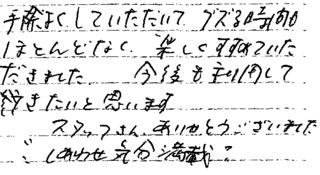 手際よくしていただいて グズる時間が
ほとんどなく、楽しくすすめていた
だきました 今後も利用して
行きたいと思います
スタッフさん、ありがとうございました
しあわせ気分満載